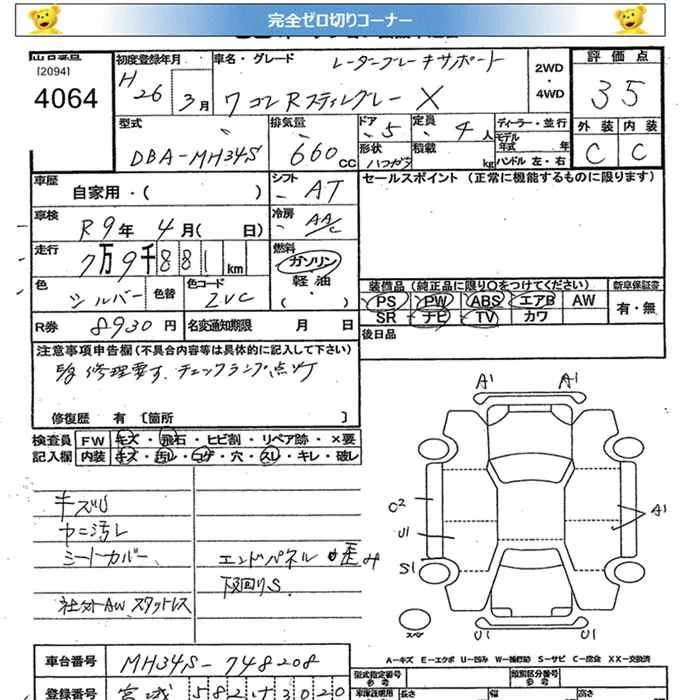 完全ゼロ切りコーナー
出品番号
[2094]
4064
初度登録年月
H
26年 3月
車名・グレード
レーダーブレーキサポート
ワゴンRスティングレー X
2WD
・
4WD
評価点
3.5
外装 内装
C C
型式
DBA-MH34S
排気量
660cc
ドア 5
形状 ハッチバック
定員 4人
積載 kg
ディーラー・並行
モデル年式 年
ハンドル 左・右
車歴
自家用・( )
シフト AT
セールスポイント(正常に機能するものに限ります)
車検
R9年 4月( 日)
冷房 AAC
走行
7万9千881km
燃料
ガソリン
軽油
・( )
色 シルバー
色替
色コード Z7C
R券 8930円
名変通知期限 月 日
装備品(純正品に限り○をつけてください)
新車保証書
PS PW ABS エアB AW
有・無
SR ナビ TV カワ
後日品
注意事項申告欄(不具合内容等は具体的に記入して下さい)
修理要す、チェックランプ点灯
修復歴 有 [箇所 ]
検査員記入欄
FW キズ・飛石・ヒビ割・リペア跡・×要
内装 キズ・汚レ・コゲ・穴・スレ・キレ・破レ
キズ小
ヤニ汚レ
シートカバー
エンドパネル 歪み
下回りS
社外AW スタットレス
A1 A1
C2
U1
A1
S1
スペア
U1 U1
A-キズ E-エクボ U-凹み W-補修跡 S-サビ C-腐食 XX-交換済
車台番号
MH34S-748208
登録番号
宮城 582 け 3020
型式指定番号
参考
類別区分番号
参考
車体説明用
長さ
幅
高さ